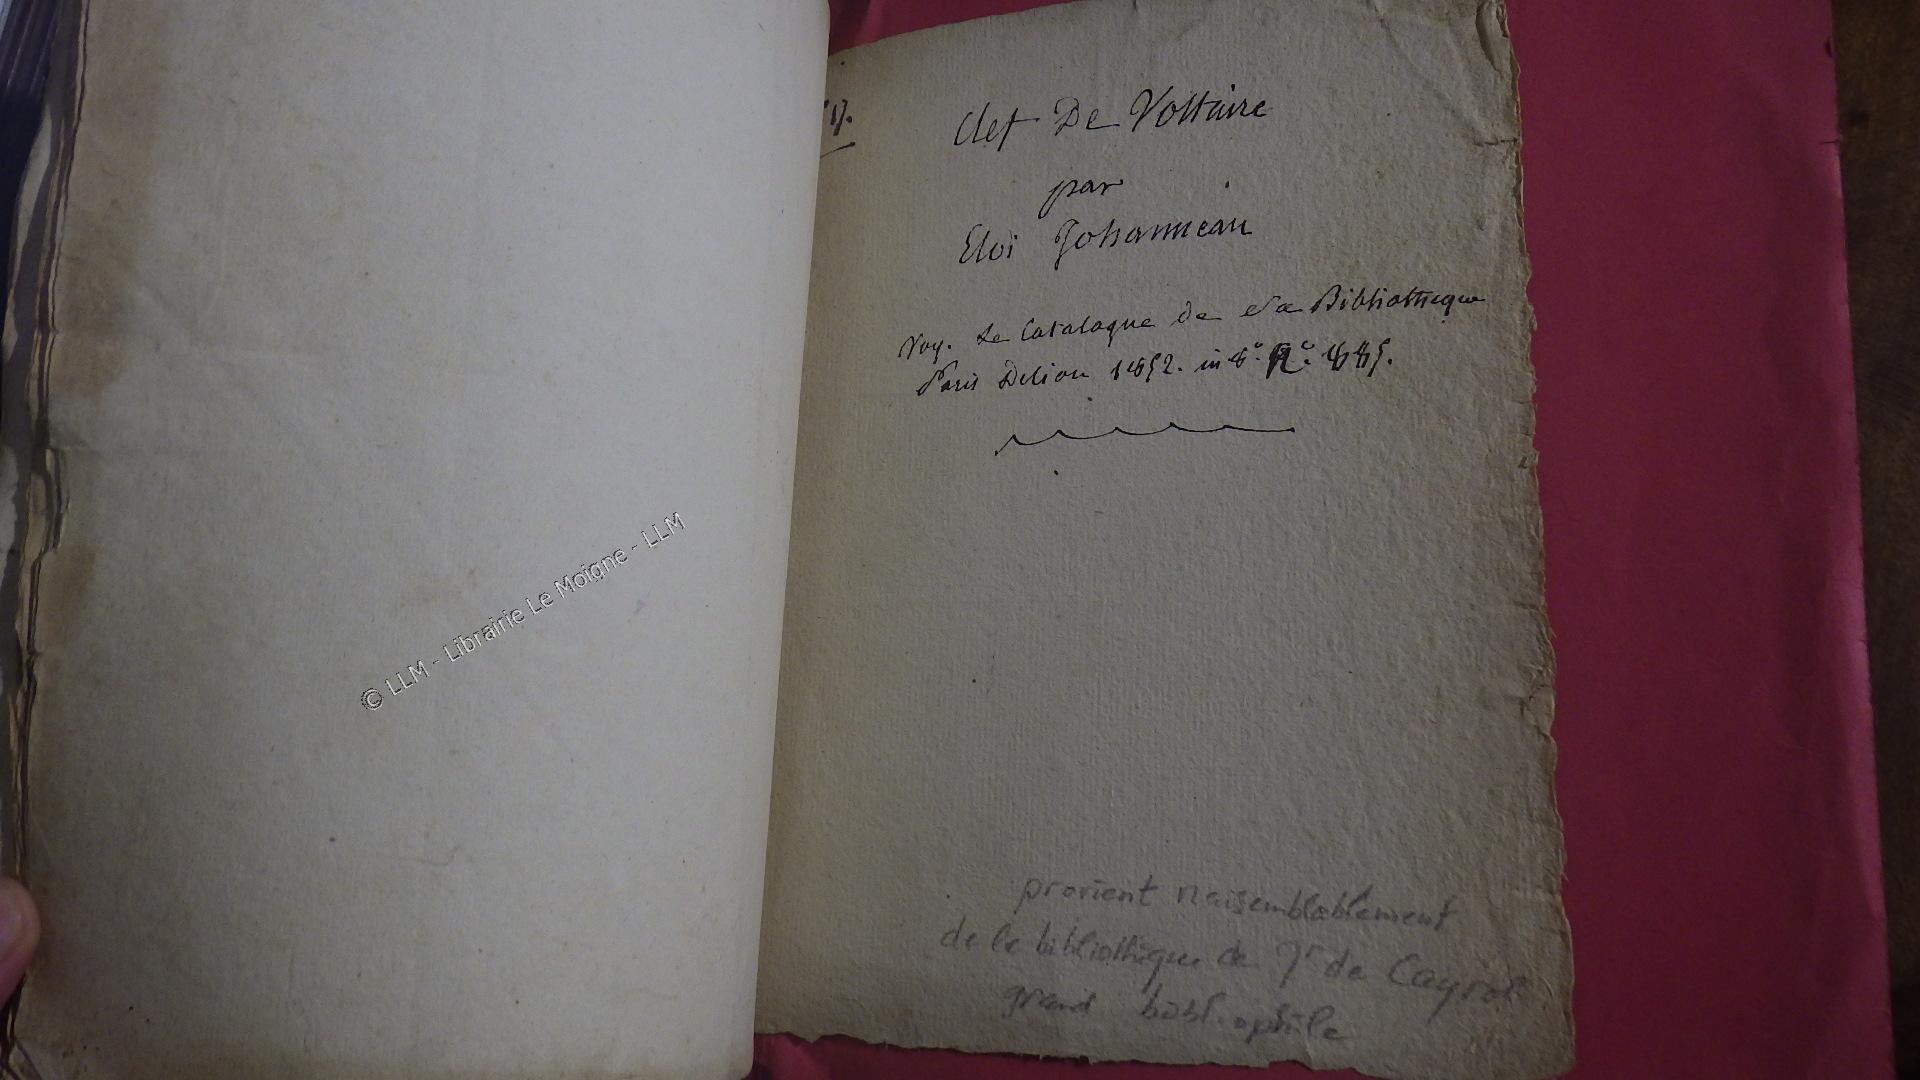 Clef De Voltaire
par
Eloi Johanneau
Voy. Le Catalogue de sa Bibliotheque
Paris Delion 1852. in 8°. N°. 885.
provient vraisemblablement
de la bibliothèque de Mr de Cayrol
grand bibliophile
© LLM - Librairie Le Moigne - LLM